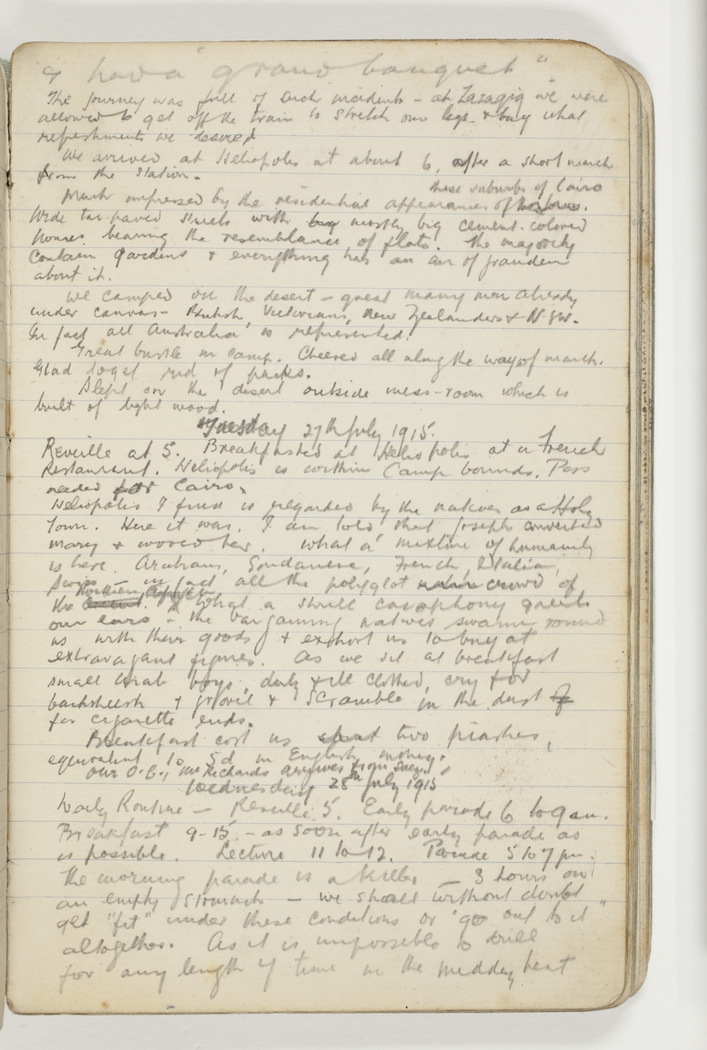 & had a "grand banquet"
The journey was full of such incidents – at Zagazig we were
allowed to get off the train to stretch our legs & buy what
refreshments we desired
We arrived at Heliopolis at about 6, after a short march
from the station.
these suburbs of Cairo
Much impressed by the residential appearances of
Wide tar paved streets with mostly big cement colored
houses bearing the resemblance of flats. The majority
contain gardens & everything has an air of
about it.
We camped on the desert – great many men already
under canvas – British, Victorians, New Zealanders & N.S.W.
In fact all Australia is represented.
Great bustle in camp. Cheered all along the way of march.
Glad to get rid of packs.
Slept on the desert outside mess-room which is
built of light wood.
Tuesday 27th July 1915.
Reveille at 5. Breakfasted at Heliopolis at a French
Restaurant. Heliopolis is within Camp bounds. Pass
needed for Cairo.
Heliopolis I find is regarded by the natives as a Holy
Town. Here it was, I am told that Joseph
Mary & wooed her. What a mixture of humanity
is here. Arabians, Soudanese, French, Italian,
Swiss – in fact all the polyglot crowd of
Northern
the What a shrill cacophony greets
our ears – the bargaining natives swarm round
us with their goods & exhort us to buy at
extravagant figures. As we sit at breakfast
small Arab boys, dirty & ill clothed, cry for
backsheesh & grovel & scramble in the dust
for cigarette ends.
Breakfast cost us about two piastres,
equivalent to 5d in English money.
Our O.C., Mr Richards arrives from Suez.
Wednesday 28th July 1915
Daily Routine – Reveille 5. Early parade 6 to 9 am.
Breakfast 9-15 – as soon after early parade as
is possible. Lecture 11 to 12. Parade 5 to 7 pm.
The morning parade is a killer – 3 hours on
an empty stomach – we shall without doubt
get "fit" under these conditions or "go out to it"
altogether. As it is impossible to drill
for any length of time in the midday heat